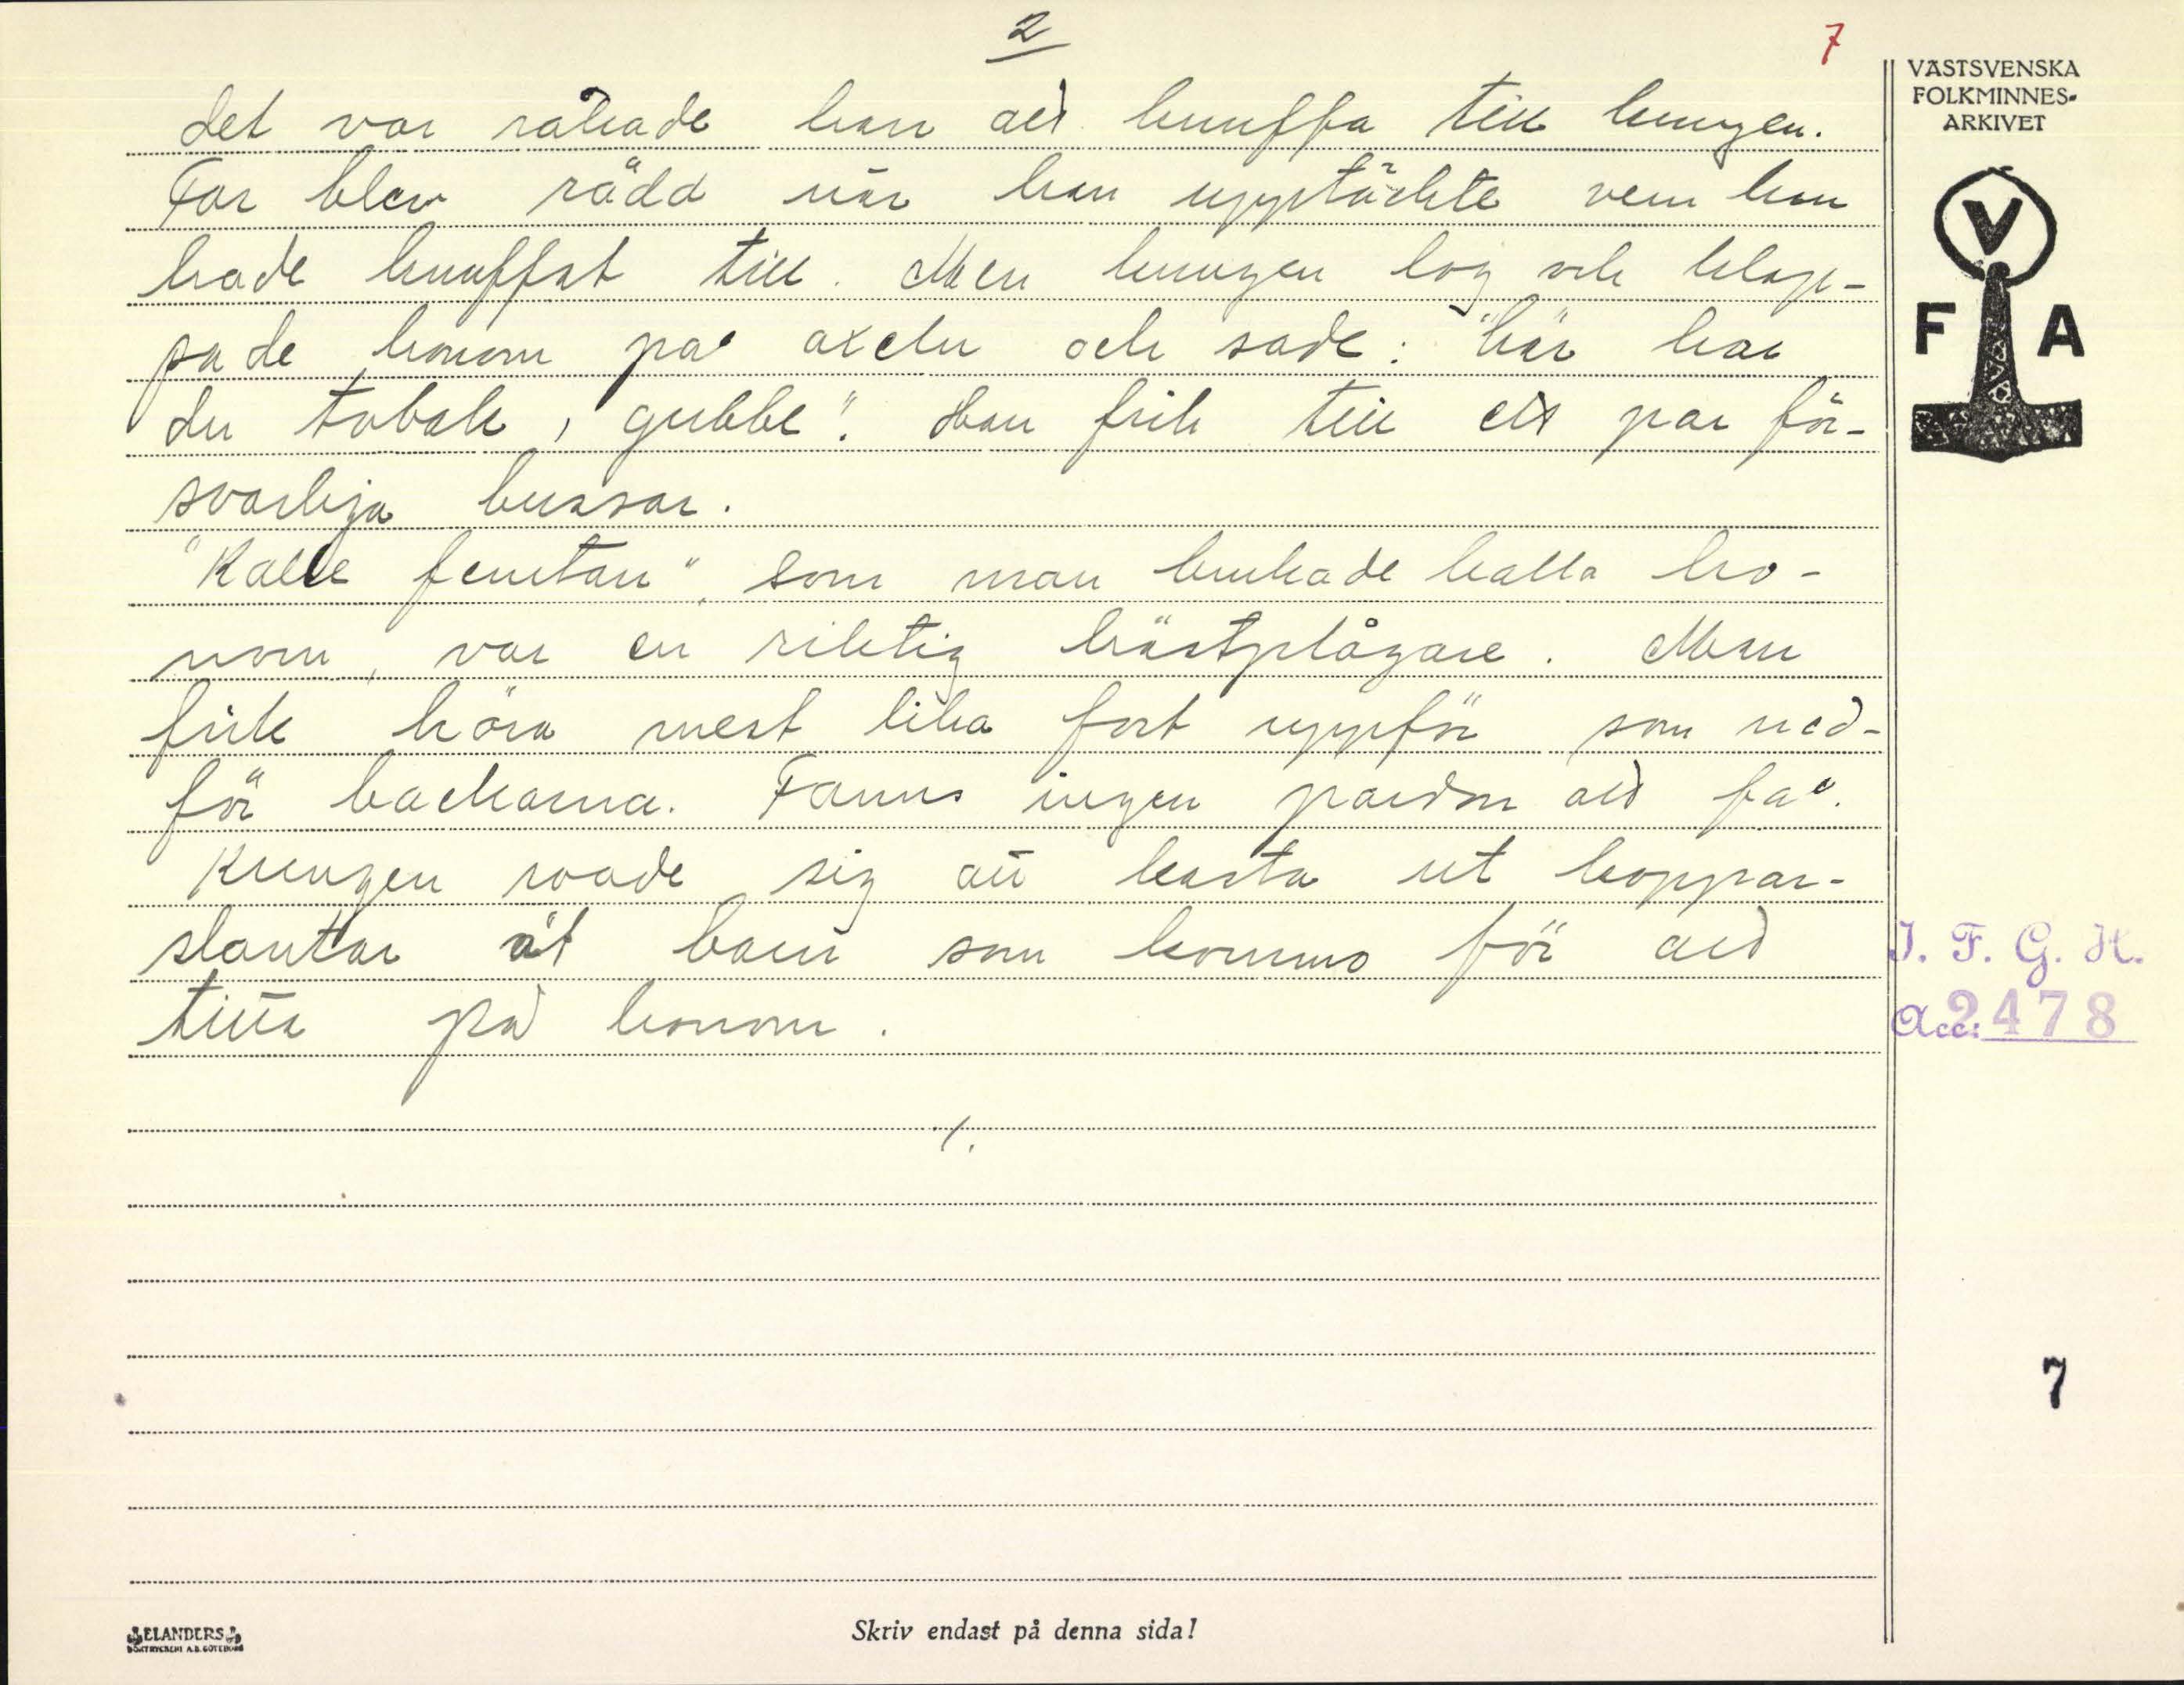 2
7
VÄSTSVENSKA
FOLKMINNES-
ARKIVET
V
F A
det var råkade han att knuffa till kungen.
Far blev rädd när han upptäckte vem han
hade knuffat till. Men kungen log och klap-
pade honom på axeln och sade: "här har
du tobak, gubbe". Han fick till ett par för-
svarliga bussar.
"Kalle femtan", som man brukade kalla ho-
nom, var en riktig hästplågare. Man
fick köra mest lika fort uppför som ned-
för backarna. Fanns ingen pardon att få.
Kungen roade sig att kasta ut koppar-
slantar åt barn som kommo för att
titta på honom.
./.
I. F. G. H.
Acc: 2478
7
ELANDERS
BOKTRYCKERI A.B. GÖTEBORG
Skriv endast på denna sida!